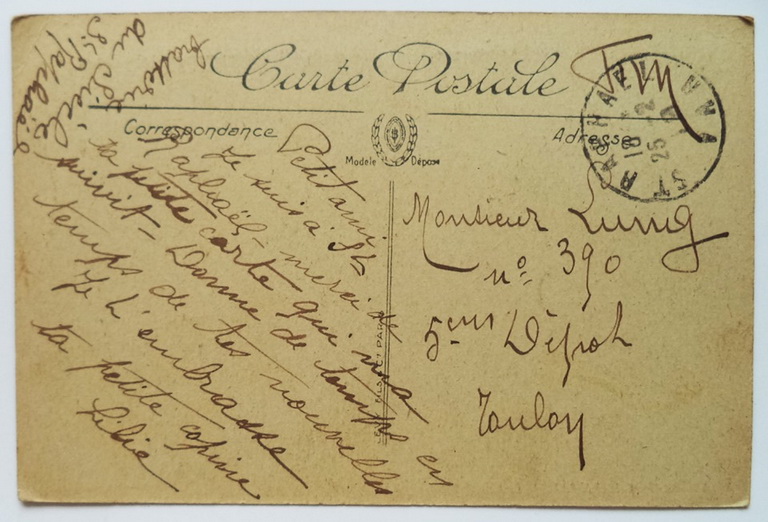 Carte Postale
Correspondance
Adresse
Modèle Déposé
FM
ST RAPHAEL
18
25
Petit ami
Je suis à St
Raphaël merci de
ta petite carte qui m'a
suivit - Donne de temps en
temps de tes nouvelles
Je t'embrasse
ta petite copine
Lilie
du Siècle
St Raphaël
Monsieur Lunig
n° 390
5em Dépôt
Toulon